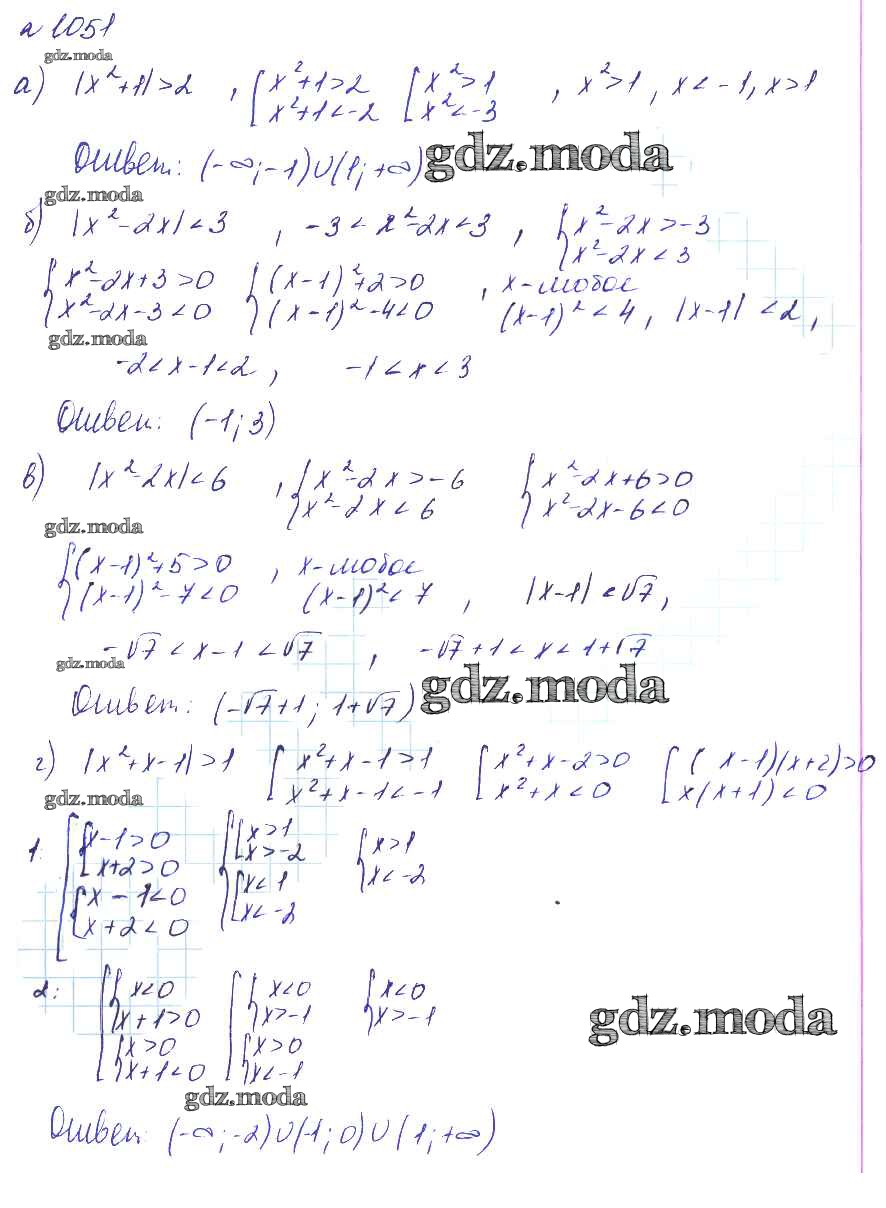 а 1051
gdz.moda
а) |x²+1|>2 , [x²+1>2 [x²>1 , x²>1, x<-1, x>1
x²+1<-2 x²<-3
Ответ: (-∞;-1)∪(1;+∞) gdz.moda
gdz.moda
б) |x²-2x|<3 , -3<x²-2x<3 , {x²-2x>-3
x²-2x<3
{x²-2x+3>0 {(x-1)²+2>0 , x-любое
x²-2x-3<0 (x-1)²-4<0 (x-1)²<4, |x-1|<2,
gdz.moda
-2<x-1<2, -1<x<3
Ответ: (-1;3)
в) |x²-2x|<6 , {x²-2x>-6 {x²-2x+6>0
x²-2x<6 x²-2x-6<0
gdz.moda
{(x-1)²+5>0 , x-любое
(x-1)²-7<0 (x-1)²<7 , |x-1|<√7,
-√7<x-1<√7 , -√7+1<x<1+√7
gdz.moda
Ответ: (-√7+1; 1+√7) gdz.moda
г) |x²+x-1|>1 [x²+x-1>1 [x²+x-2>0 [(x-1)(x+2)>0
x²+x-1<-1 x²+x<0 x(x+1)<0
gdz.moda
1. [{x-1>0 {[x>1 {x>1
x+2>0 x>-2 x<-2
{x-1<0 {x<1
x+2<0 x<-2
2: [{x<0 [{x<0 {x<0
x+1>0 x>-1 x>-1
{x>0 {x>0
x+1<0 x<-1
gdz.moda
gdz.moda
Ответ: (-∞;-2)∪(-1;0)∪(1;+∞)